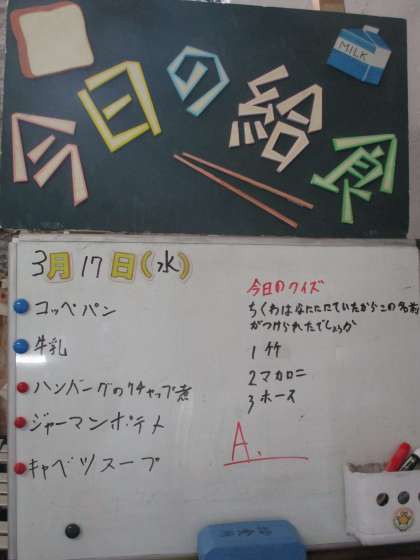 今日の給食
MILK
3月17日(水)
コッペパン
牛乳
ハンバーグのケチャップ煮
ジャーマンポテト
キャベツスープ
今日のクイズ
ちくわはなにににていたからこの名前
がつけられたでしょうか
1 竹
2 マカロニ
3 ホース
A.